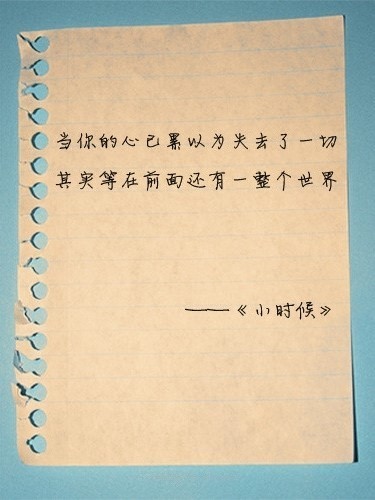 当你的心已累以为失去了一切
其实等在前面还有一整个世界
——《小时候》